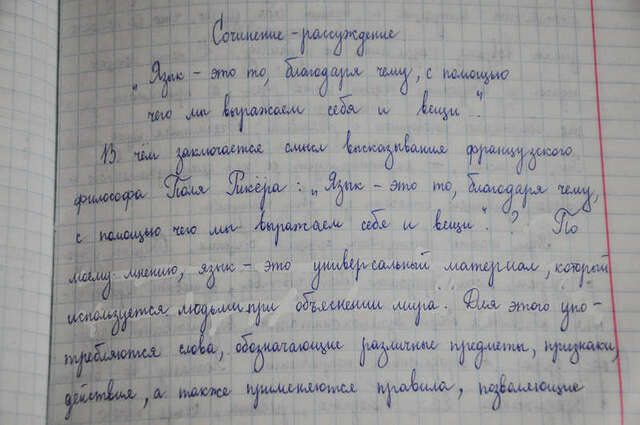 Сочинение - рассуждение
„Язык - это то, благодаря чему, с помощью
чего мы выражаем себя и вещи".
В чём заключается смысл высказывания французского
философа Поля Рикёра: „Язык - это то, благодаря чему,
с помощью чего мы выражаем себя и вещи".? По
моему мнению, язык - это универсальный материал, который
используется людьми при объяснении мира. Для этого упо-
требляются слова, обозначающие различные предметы, признаки,
действия, а также применяются правила, позволяющие